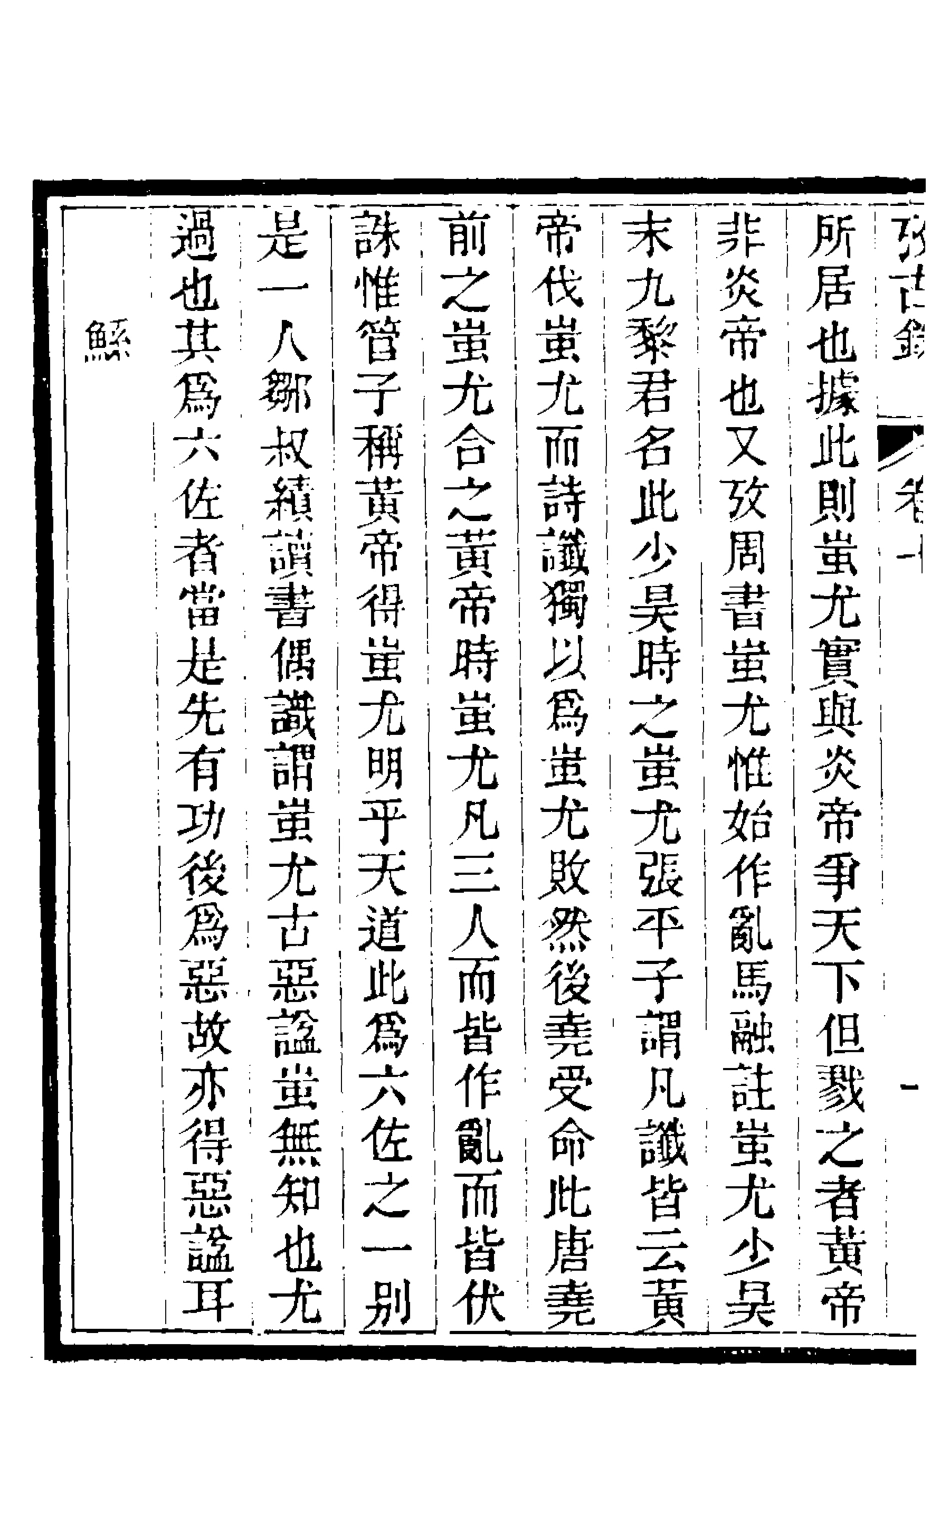 攷古錄 卷十 一
所居也據此則蚩尤實與炎帝爭天下但戮之者黃帝
非炎帝也又攷周書蚩尤惟始作亂馬融註蚩尤少昊
末九黎君名此少昊時之蚩尤張平子謂凡讖皆云黃
帝伐蚩尤而詩讖獨以爲蚩尤敗然後堯受命此唐堯
前之蚩尤合之黃帝時蚩尤凡三人而皆作亂而皆伏
誅惟管子稱黃帝得蚩尤明乎天道此爲六佐之一別
是一人鄒叔績讀書偶識謂蚩尤古惡諡蚩無知也尤
過也其爲六佐者當是先有功後爲惡故亦得惡諡耳
鯀